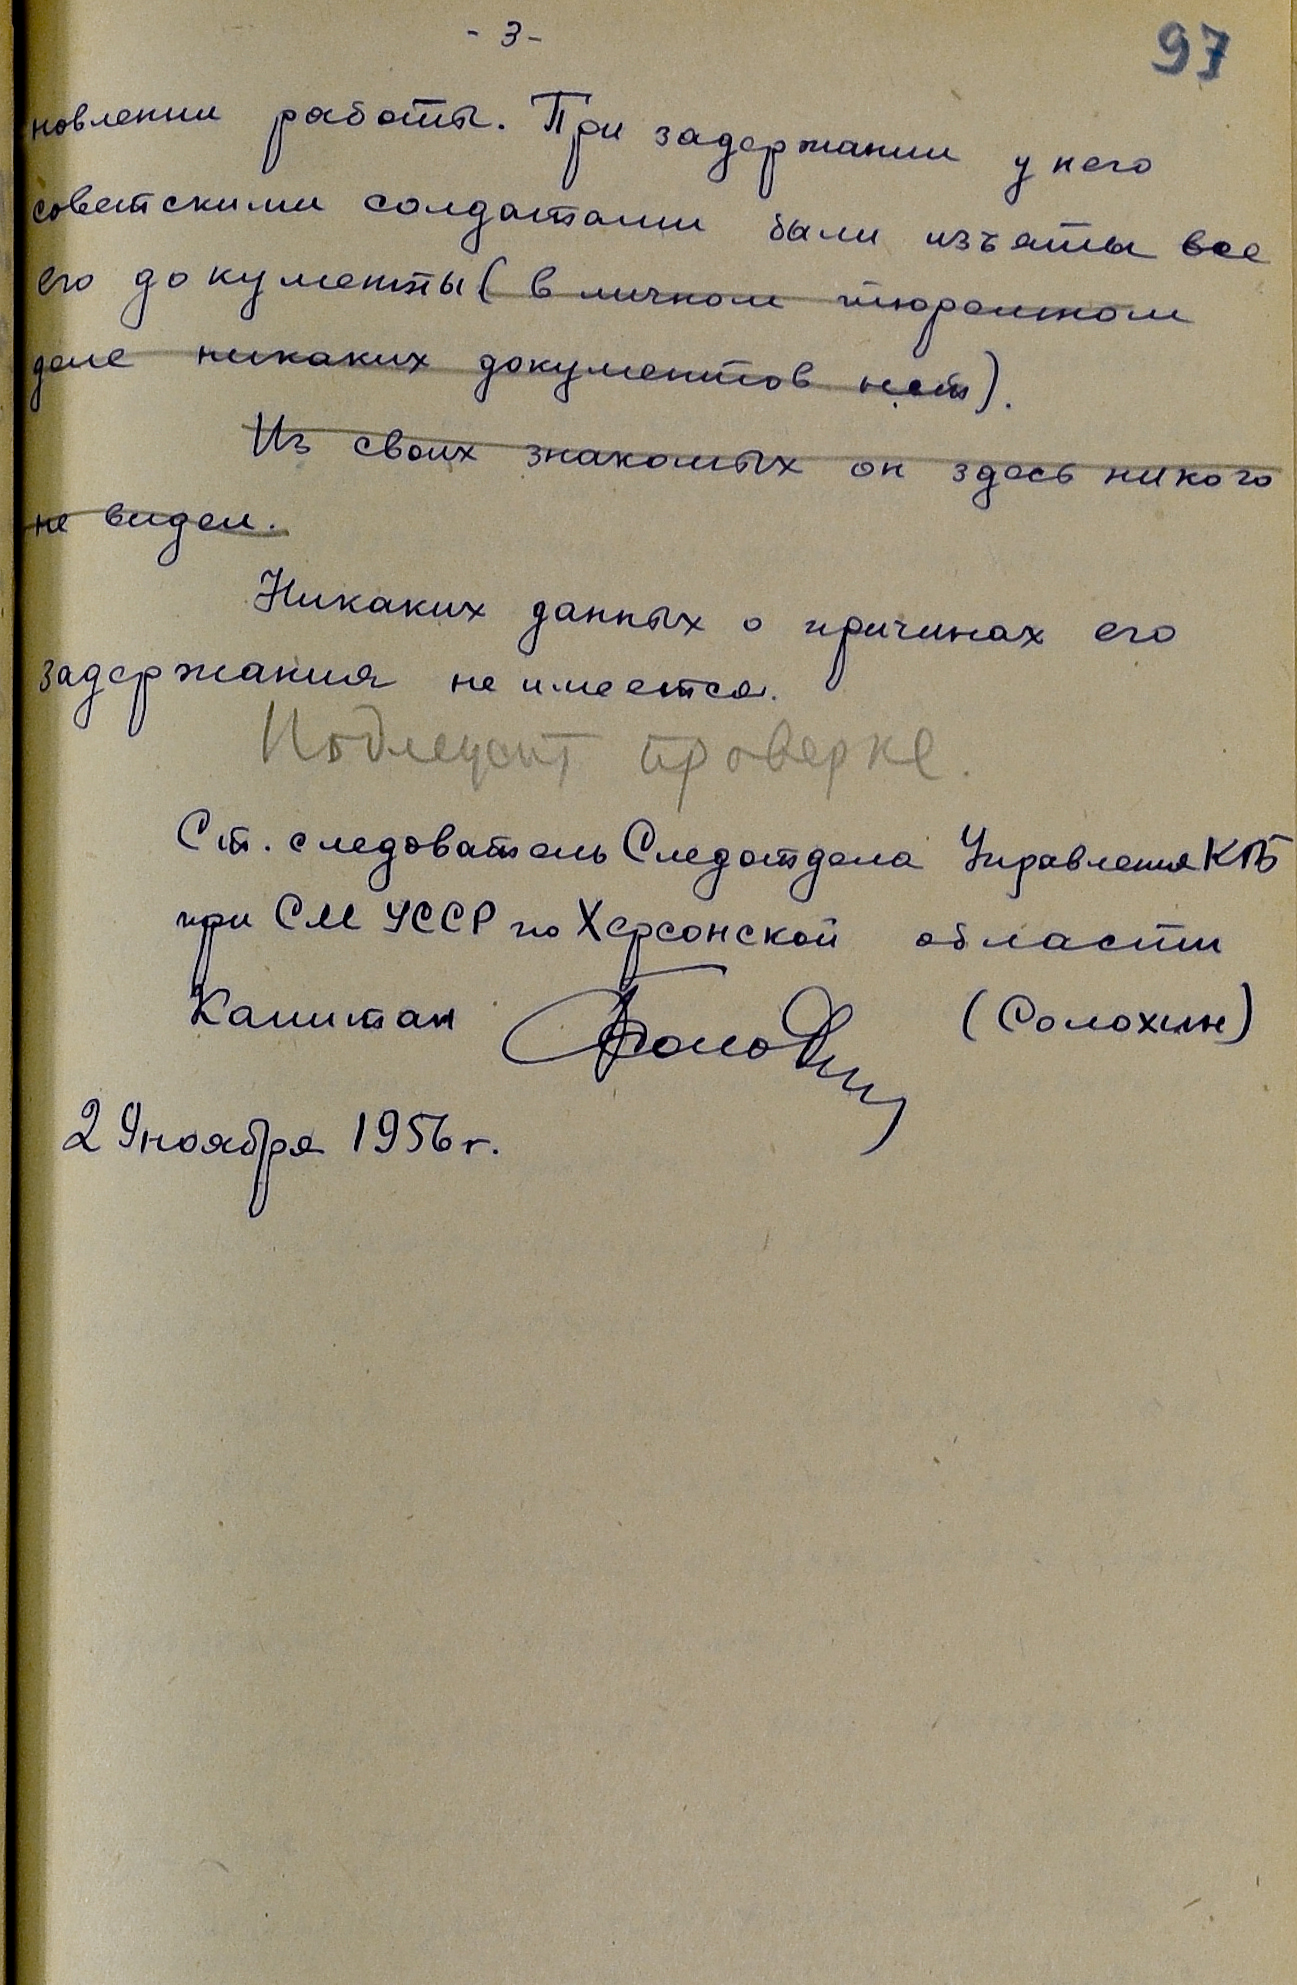 - 3 -
97
новлении работы. При задержании у него
советскими солдатами были изъяты все
его документы (в личном тюремном
деле никаких документов нет).
Из своих знакомых он здесь никого
не видел.
Никаких данных о причинах его
задержания не имеется.
Подлежит проверке.
Ст. следователь Следотдела Управления КГБ
при СМ УССР по Херсонской области
Капитан (Солохин)
29 ноября 1956 г.